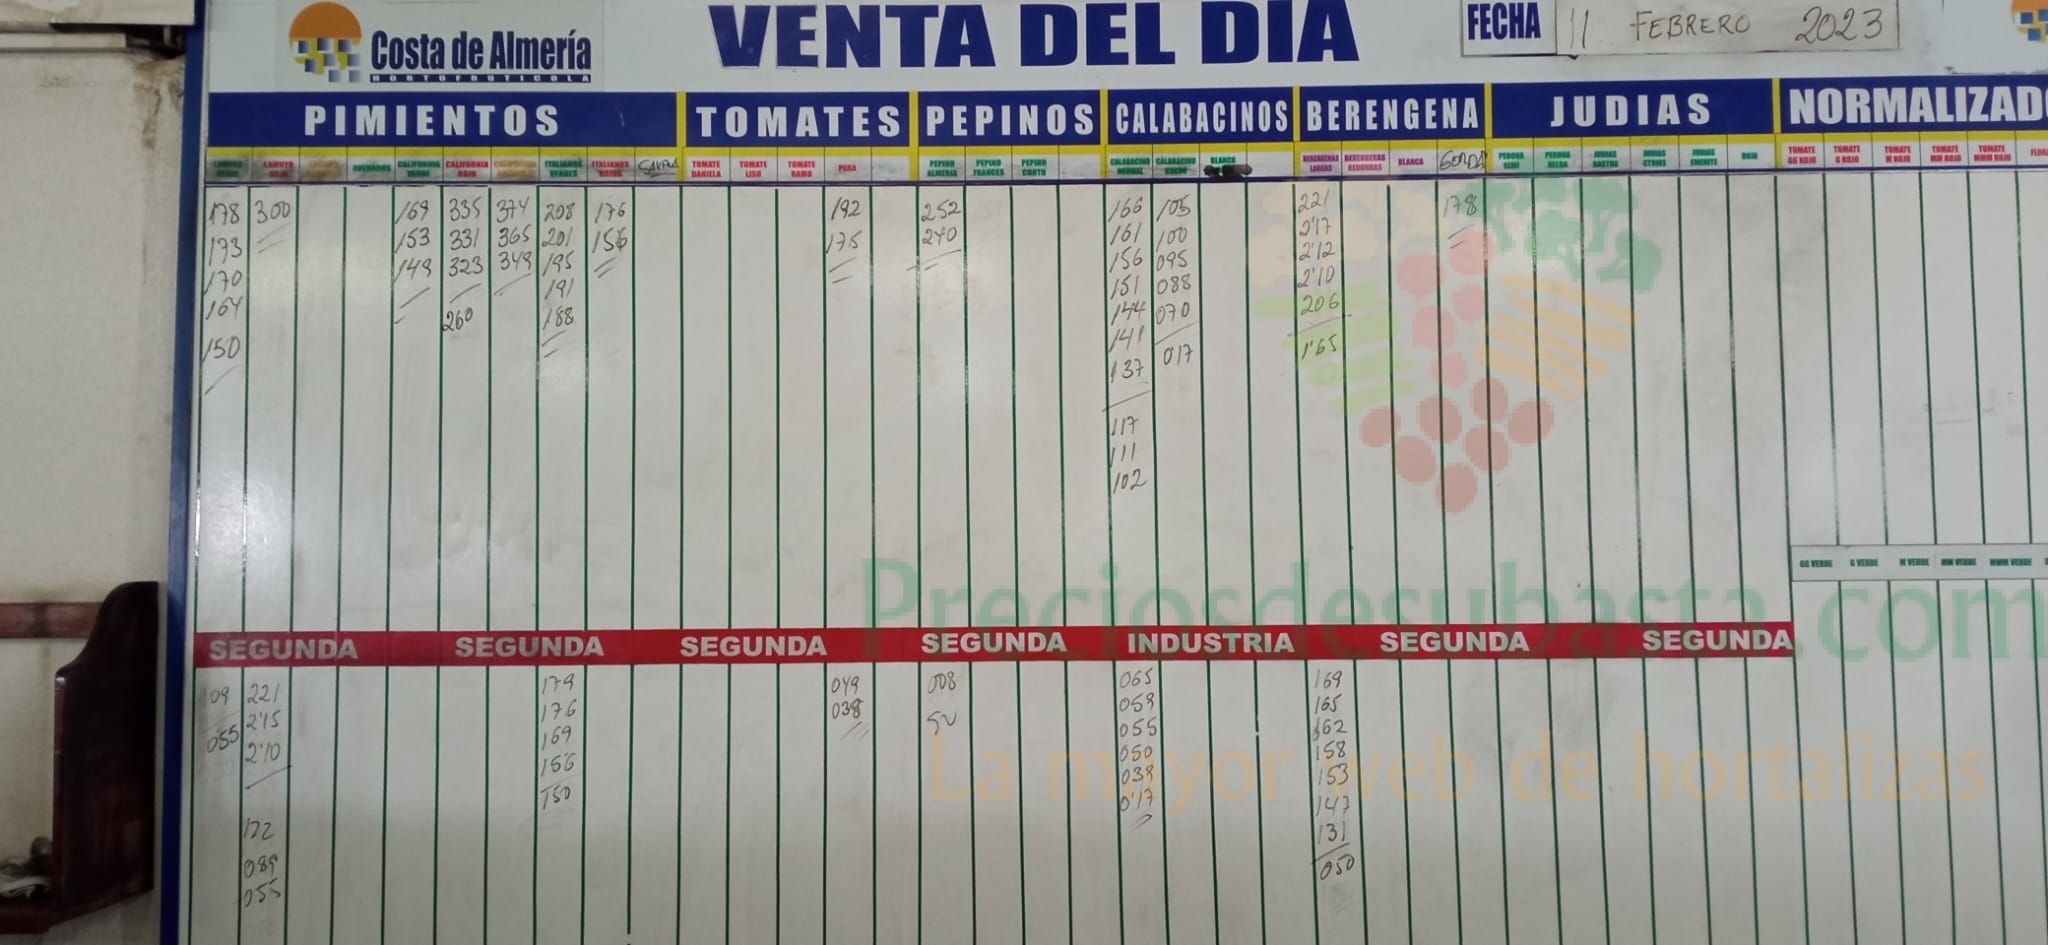 Costa de Almería
HORTOFRUTICOLA
VENTA DEL DIA
FECHA 11 FEBRERO 2023
PIMIENTOS TOMATES PEPINOS CALABACINOS BERENGENA JUDIAS NORMALIZADO
LAMUYO ROJO CALIFORNIA VERDE CALIFORNIA ROJO ITALIANOS VERDES ITALIANOS ROJOS TOMATE DANIELA TOMATE LISO TOMATE RAMO PERA PEPINO ALMERIA PEPINO FRANCES PEPINO CORTO CALABACINO NORMAL CALABACINO GORDO BLANCO BERENGENAS LARGAS BERENGENAS REDONDAS BLANCA GORDA PERONA SEMI PERONA HELDA JUDIAS RASTRA JUDIAS STRIKE JUDIAS EMERITE ROJA TOMATE GG ROJO TOMATE G ROJO TOMATE M ROJO TOMATE MM ROJO TOMATE MMM ROJO
178 300 169 335 374 208 176 192 252 166 105 221 178
173 153 331 365 201 156 175 240 161 100 2'17
170 149 323 349 195 156 095 2'12
164 260 191 151 088 2'10
150 188 144 070 206
141 017 1'65
137
117
111
102
GG VERDE G VERDE M VERDE MM VERDE MMM VERDE
SEGUNDA SEGUNDA SEGUNDA SEGUNDA INDUSTRIA SEGUNDA SEGUNDA
109 221 179 049 008 065 169
055 2'15 176 038 059 165
2'10 169 055 162
122 156 050 158
089 150 039 153
055 0'17 147
131
050
Preciosdesubasta.com
La mayor web de hortalizas